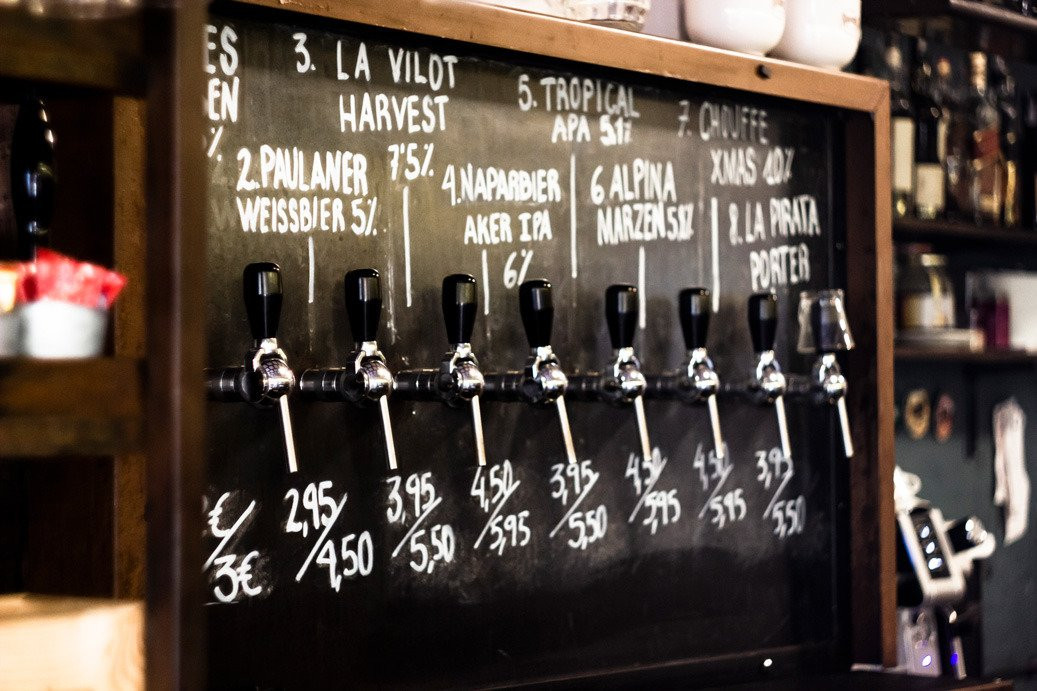 ES
EN
%
2. PAULANER
WEISSBIER 5%
3. LA VILOT
HARVEST
7'5%
4. NAPARBIER
AKER IPA
6%
5. TROPICAL
APA 5.1%
6 ALPINA
MARZEN 5.8%
7. CHOUFFE
XMAS 10%
8. LA PIRATA
PORTER
€/
3€
2,95/
4,50
3,95/
5,50
4,50/
5,95
3,95/
5,50
4,50/
5,95
4,50/
5,95
3,95/
5,50